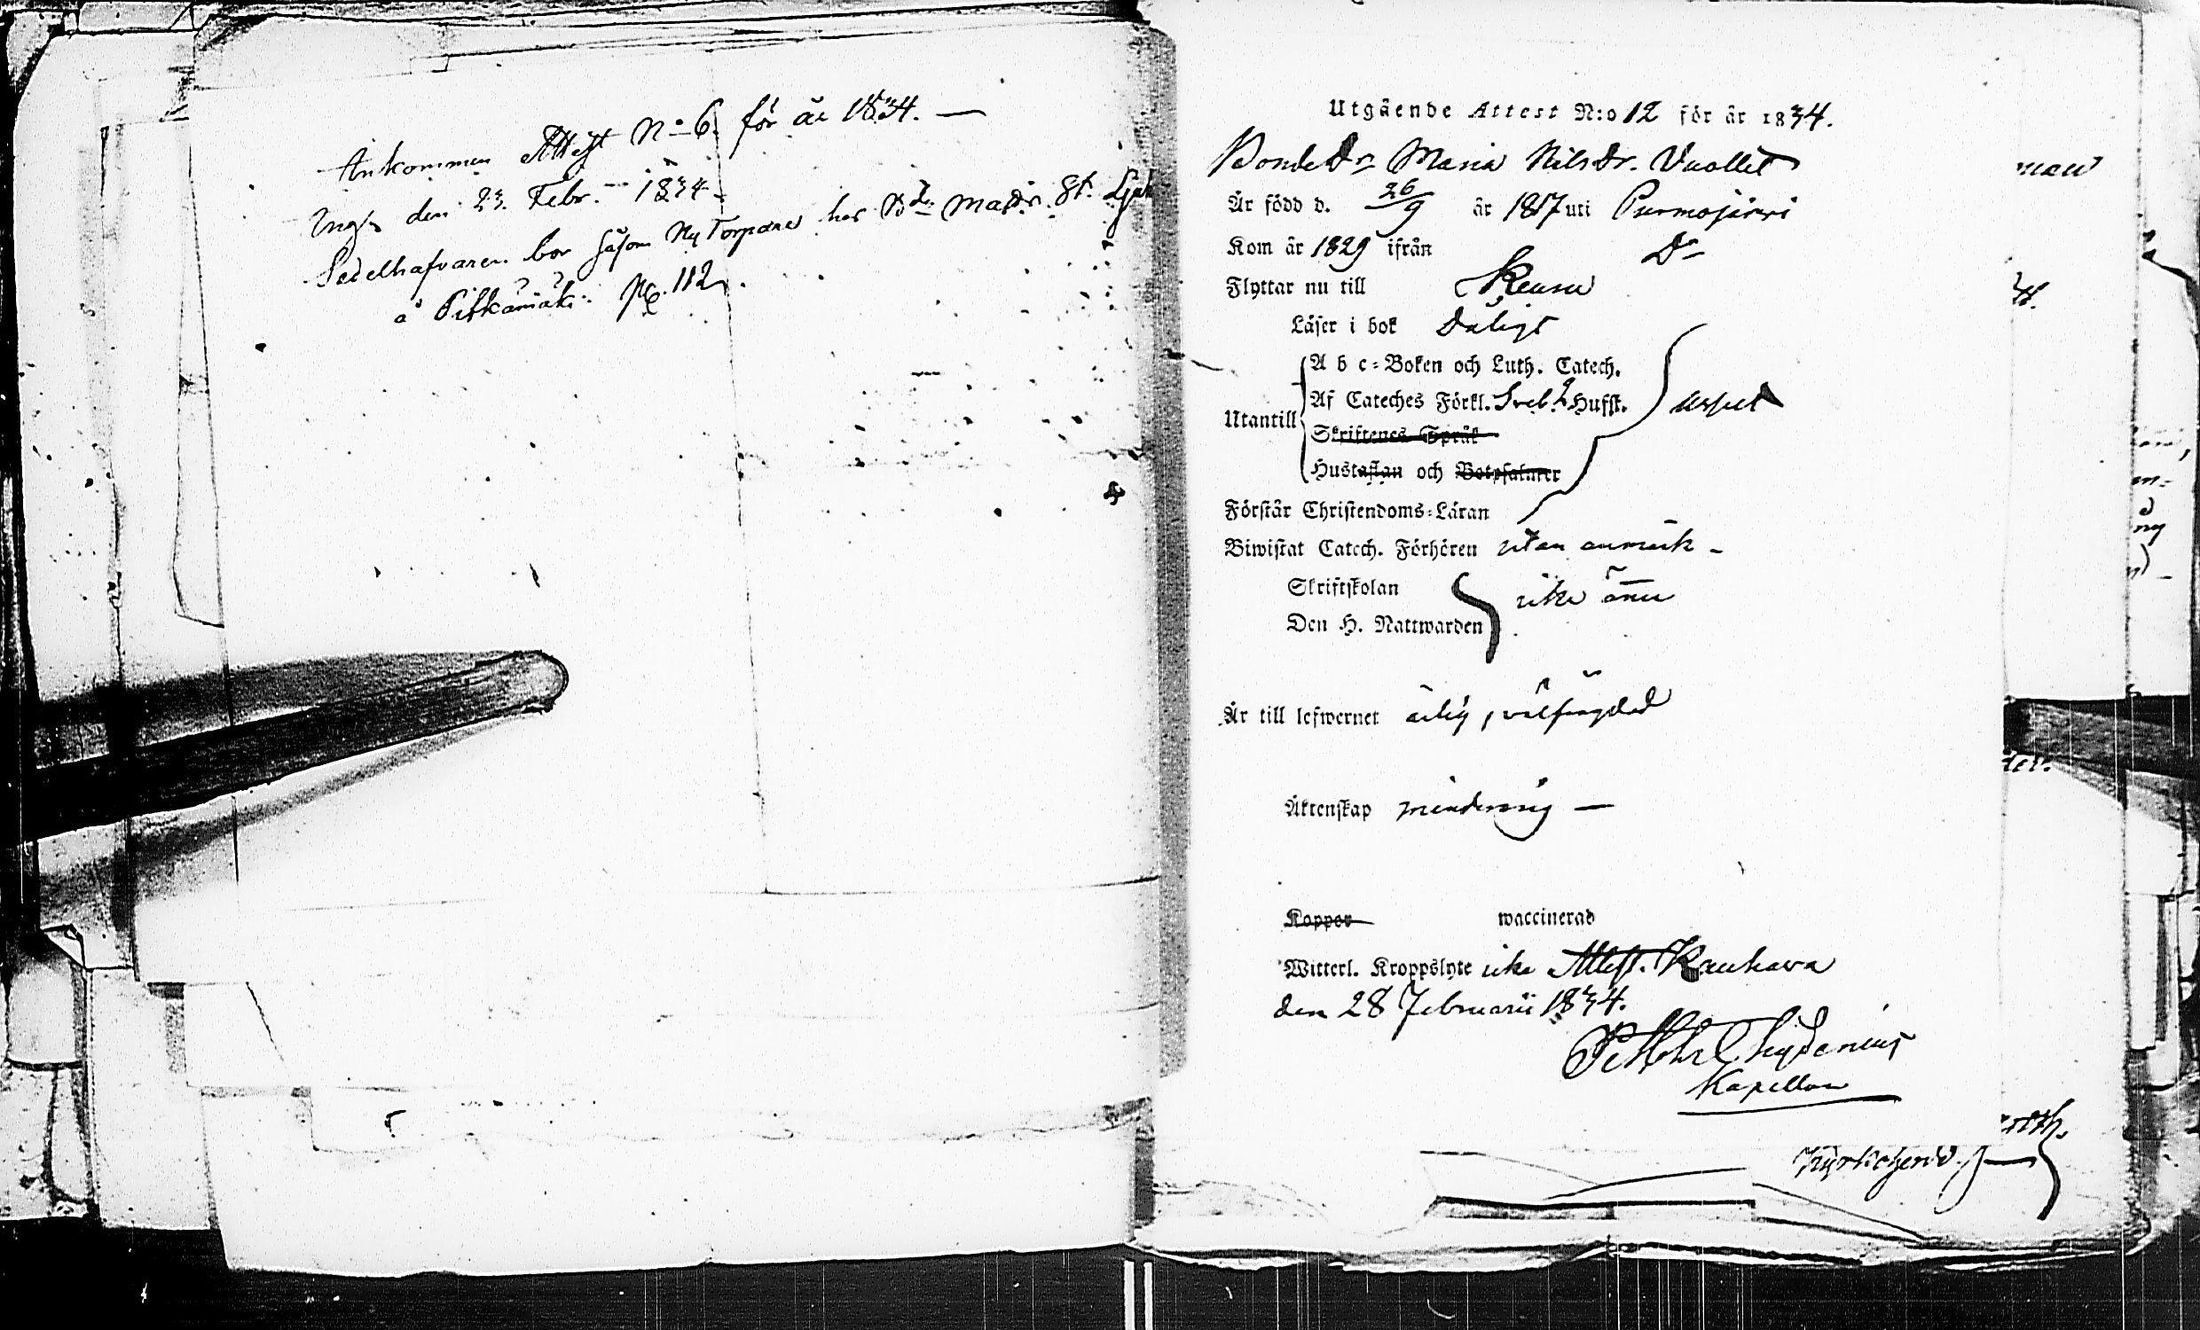 Ankommen Attest No 6. för år 1834. —
den 23. Febr. 1834
Sedelhafvaren bor såsom Ny Torpare hos
å Pitkämäki. pag. 112.
Utgående Attest N:o 12 för år 1834.
Bonde Dr. Maria Nils Dr. Vuollet
Är född d. 26/9 år 1817 uti Purmojärvi
Kom år 1829 ifrån Do
Flyttar nu till
Läser i bok Dåligt
A b c-Boken och Luth. Catech.
Af Cateches Förkl. Sveb. 2 Hufst.
Utantill
Skriftenes Språk
Hustaflan och Botpsalmer
Förstår Christendoms-Läran
Biwistat Catech. Förhören utan anmärk -
Skriftskolan
icke ännu
Den H. Nattwarden
Är till lefwernet ärlig, välfrägdad
Äktenskap minderårig —
Koppor waccinerad
Witterl. Kroppslyte icke Attest. Kauhava
den 28 Februarii 1834.
Chydenius
Kapellan